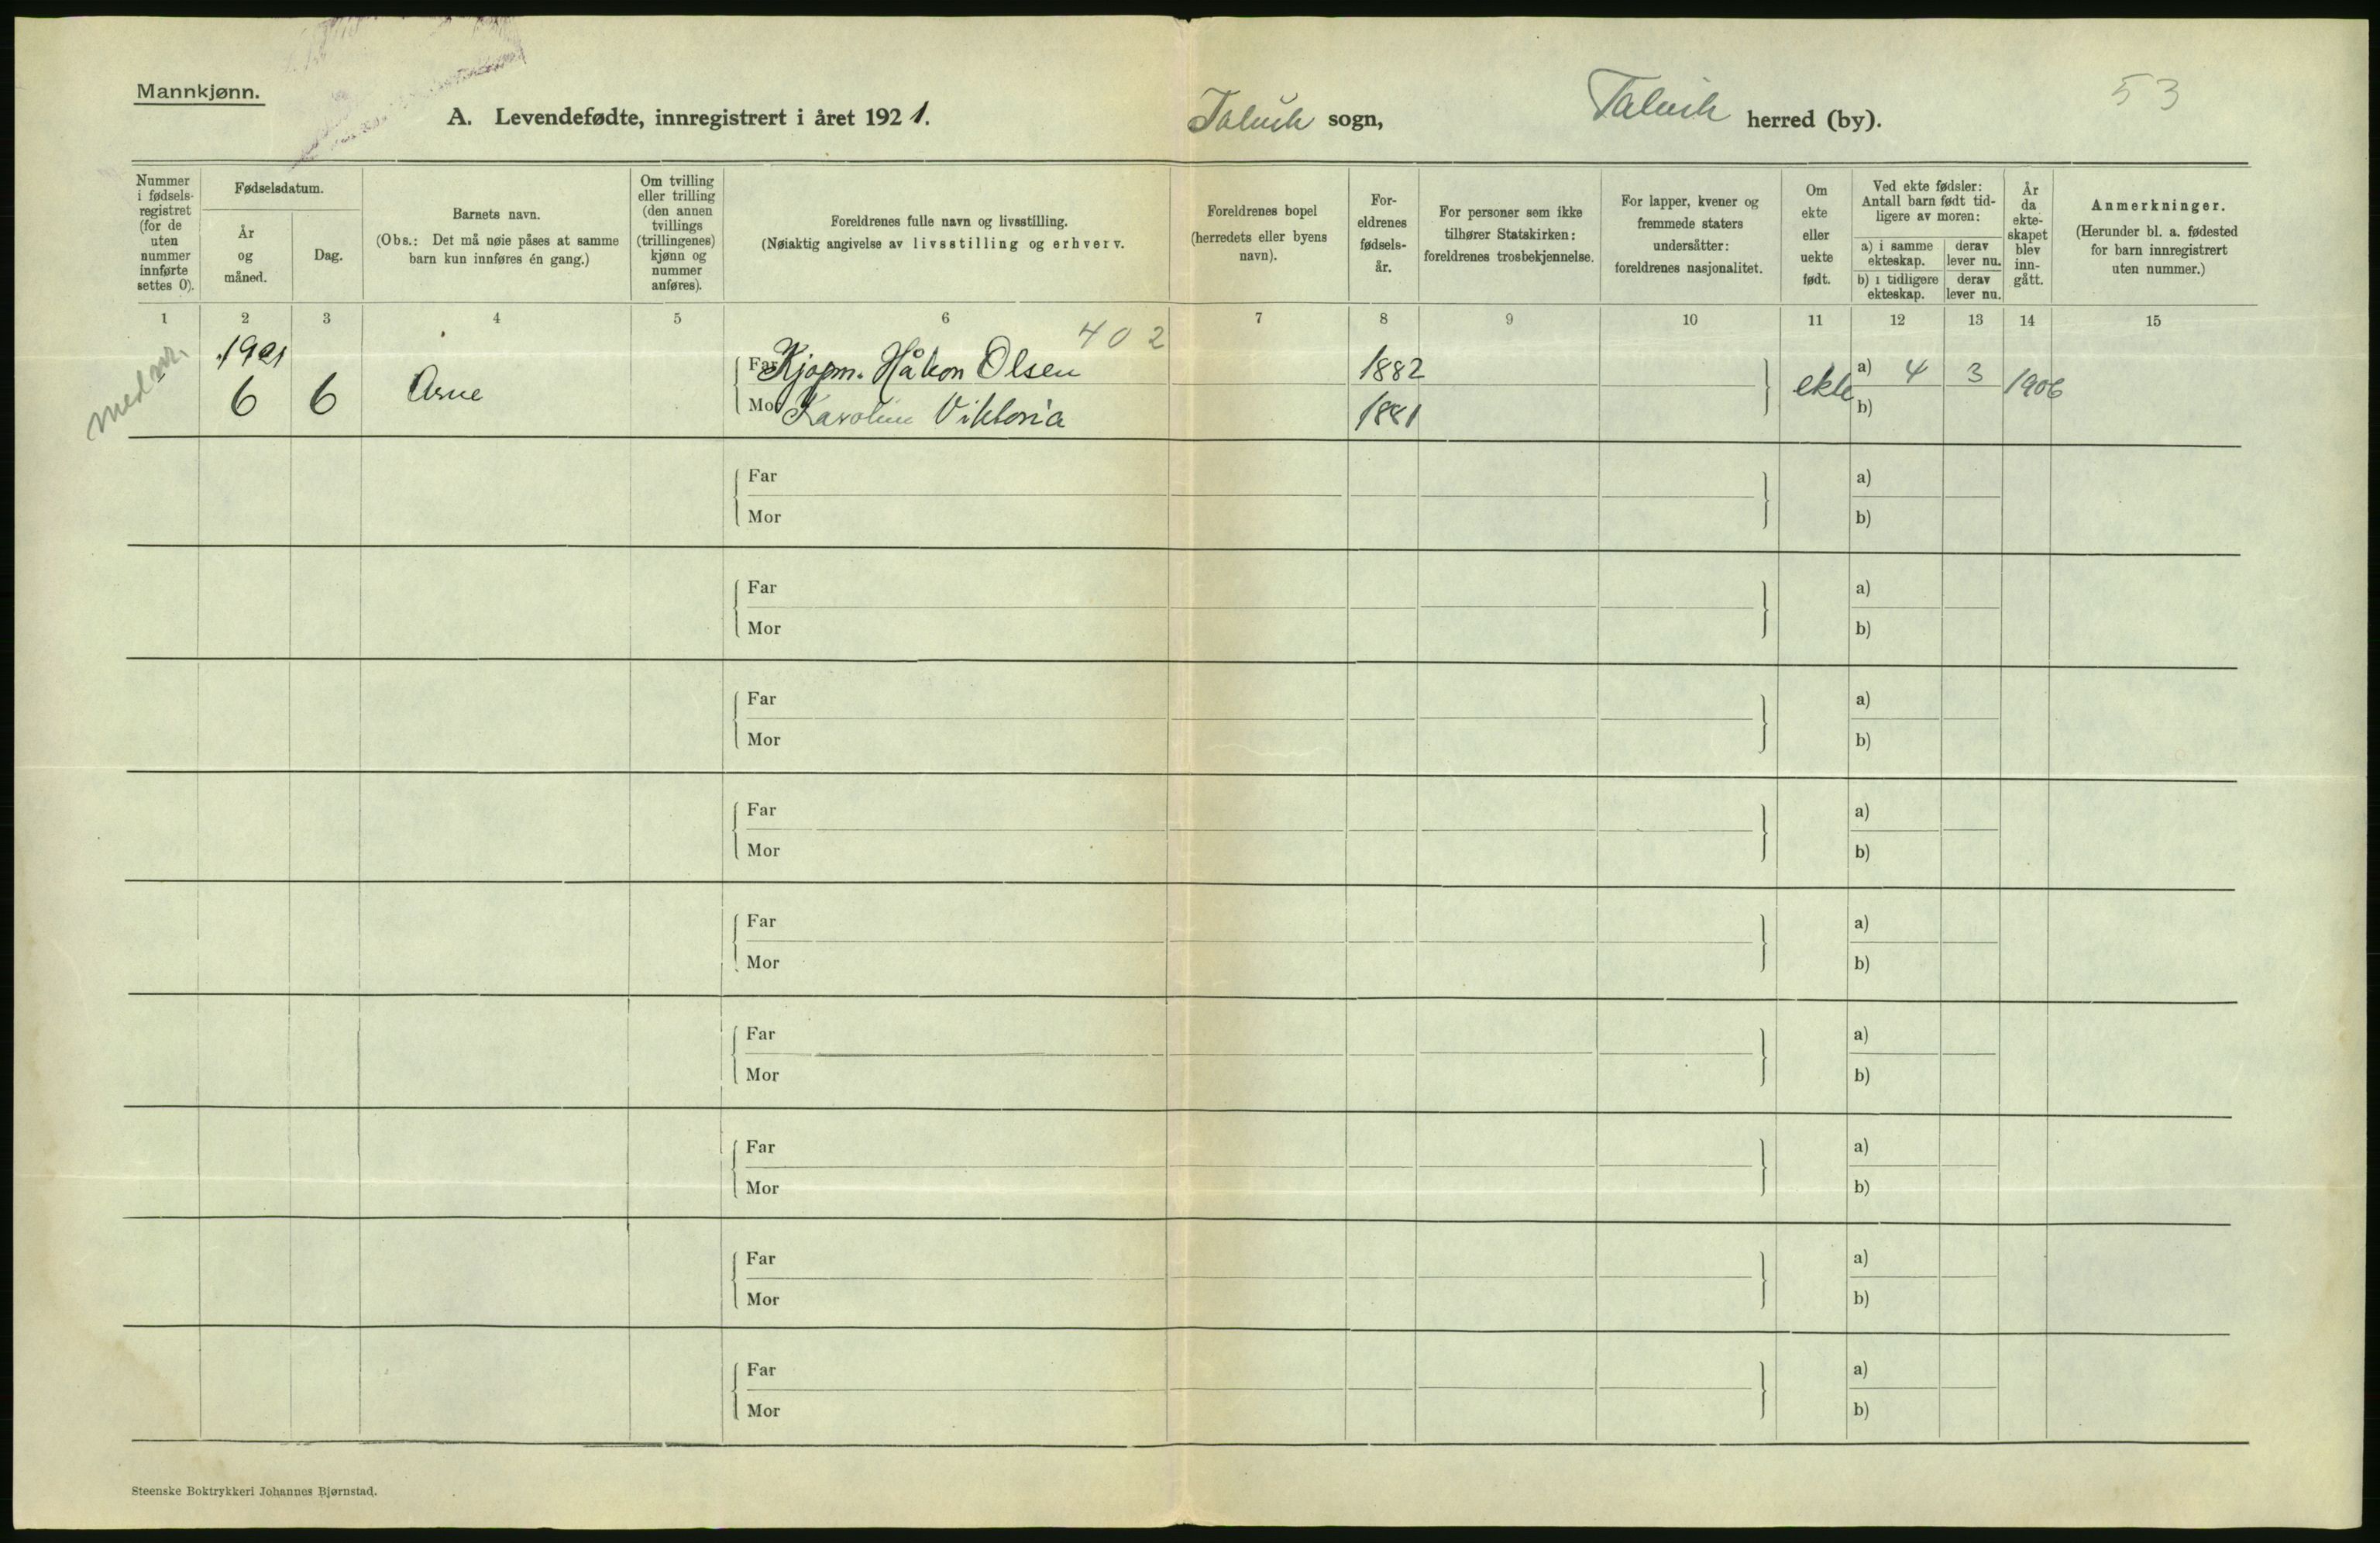 Mannkjønn.
A. Levendefødte, innregistrert i året 1921.
Talvik sogn,
Talvik herred (by).
53
Nummer
i fødsels-
registret
(for de
uten
nummer
innførte
settes 0).
Fødselsdatum.
År
og
måned.
Dag.
Barnets navn.
(Obs.: Det må nøie påses at samme
barn kun innføres én gang.)
Om tvilling
eller trilling
(den annen
tvillings
(trillingenes)
kjønn og
nummer
anføres).
Foreldrenes fulle navn og livsstilling.
(Nøiaktig angivelse av livsstilling og erhverv.
Foreldrenes bopel
(herredets eller byens
navn).
For-
eldrenes
fødsels-
år.
For personer som ikke
tilhører Statskirken:
foreldrenes trosbekjennelse.
For lapper, kvener og
fremmede staters
undersåtter:
foreldrenes nasjonalitet.
Om
ekte
eller
uekte
født.
Ved ekte fødsler:
Antall barn født tid-
ligere av moren:
a) i samme
ekteskap.
derav
lever nu.
b) i tidligere
ekteskap.
derav
lever nu.
År
da
ekte-
skapet
blev
inn-
gått.
Anmerkninger.
(Herunder bl. a. fødested
for barn innregistrert
uten nummer.)
1 2 3 4 5 6 7 8 9 10 11 12 13 14 15
402
med nr.
1921
6 6 Arne
Far Kjøpm. Håkon Olsen 1882
Mor Karoline Viktoria 1881
ekte
a) 4 3 1906
b)
Far a)
Mor b)
Far a)
Mor b)
Far a)
Mor b)
Far a)
Mor b)
Far a)
Mor b)
Far a)
Mor b)
Far a)
Mor b)
Far a)
Mor b)
Far a)
Mor b)
Steenske Boktrykkeri Johannes Bjørnstad.